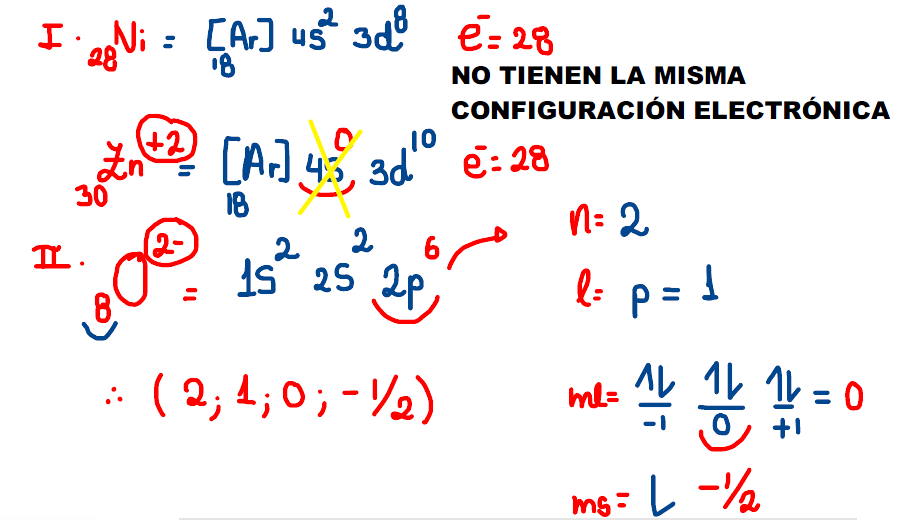 I. ₂₈Ni = [Ar]₁₈ 4s² 3d⁸ e⁻=28
NO TIENEN LA MISMA
CONFIGURACIÓN ELECTRÓNICA
₃₀Zn⁺² = [Ar]₁₈ 4s⁰ 3d¹⁰ e⁻=28
II. ₈O²⁻ = 1s² 2s² 2p⁶
n= 2
l= p = 1
ml= ↿⇂ ↿⇂ ↿⇂ = 0
-1 0 +1
ms= ⇂ -1/2
∴ (2; 1; 0; -1/2)